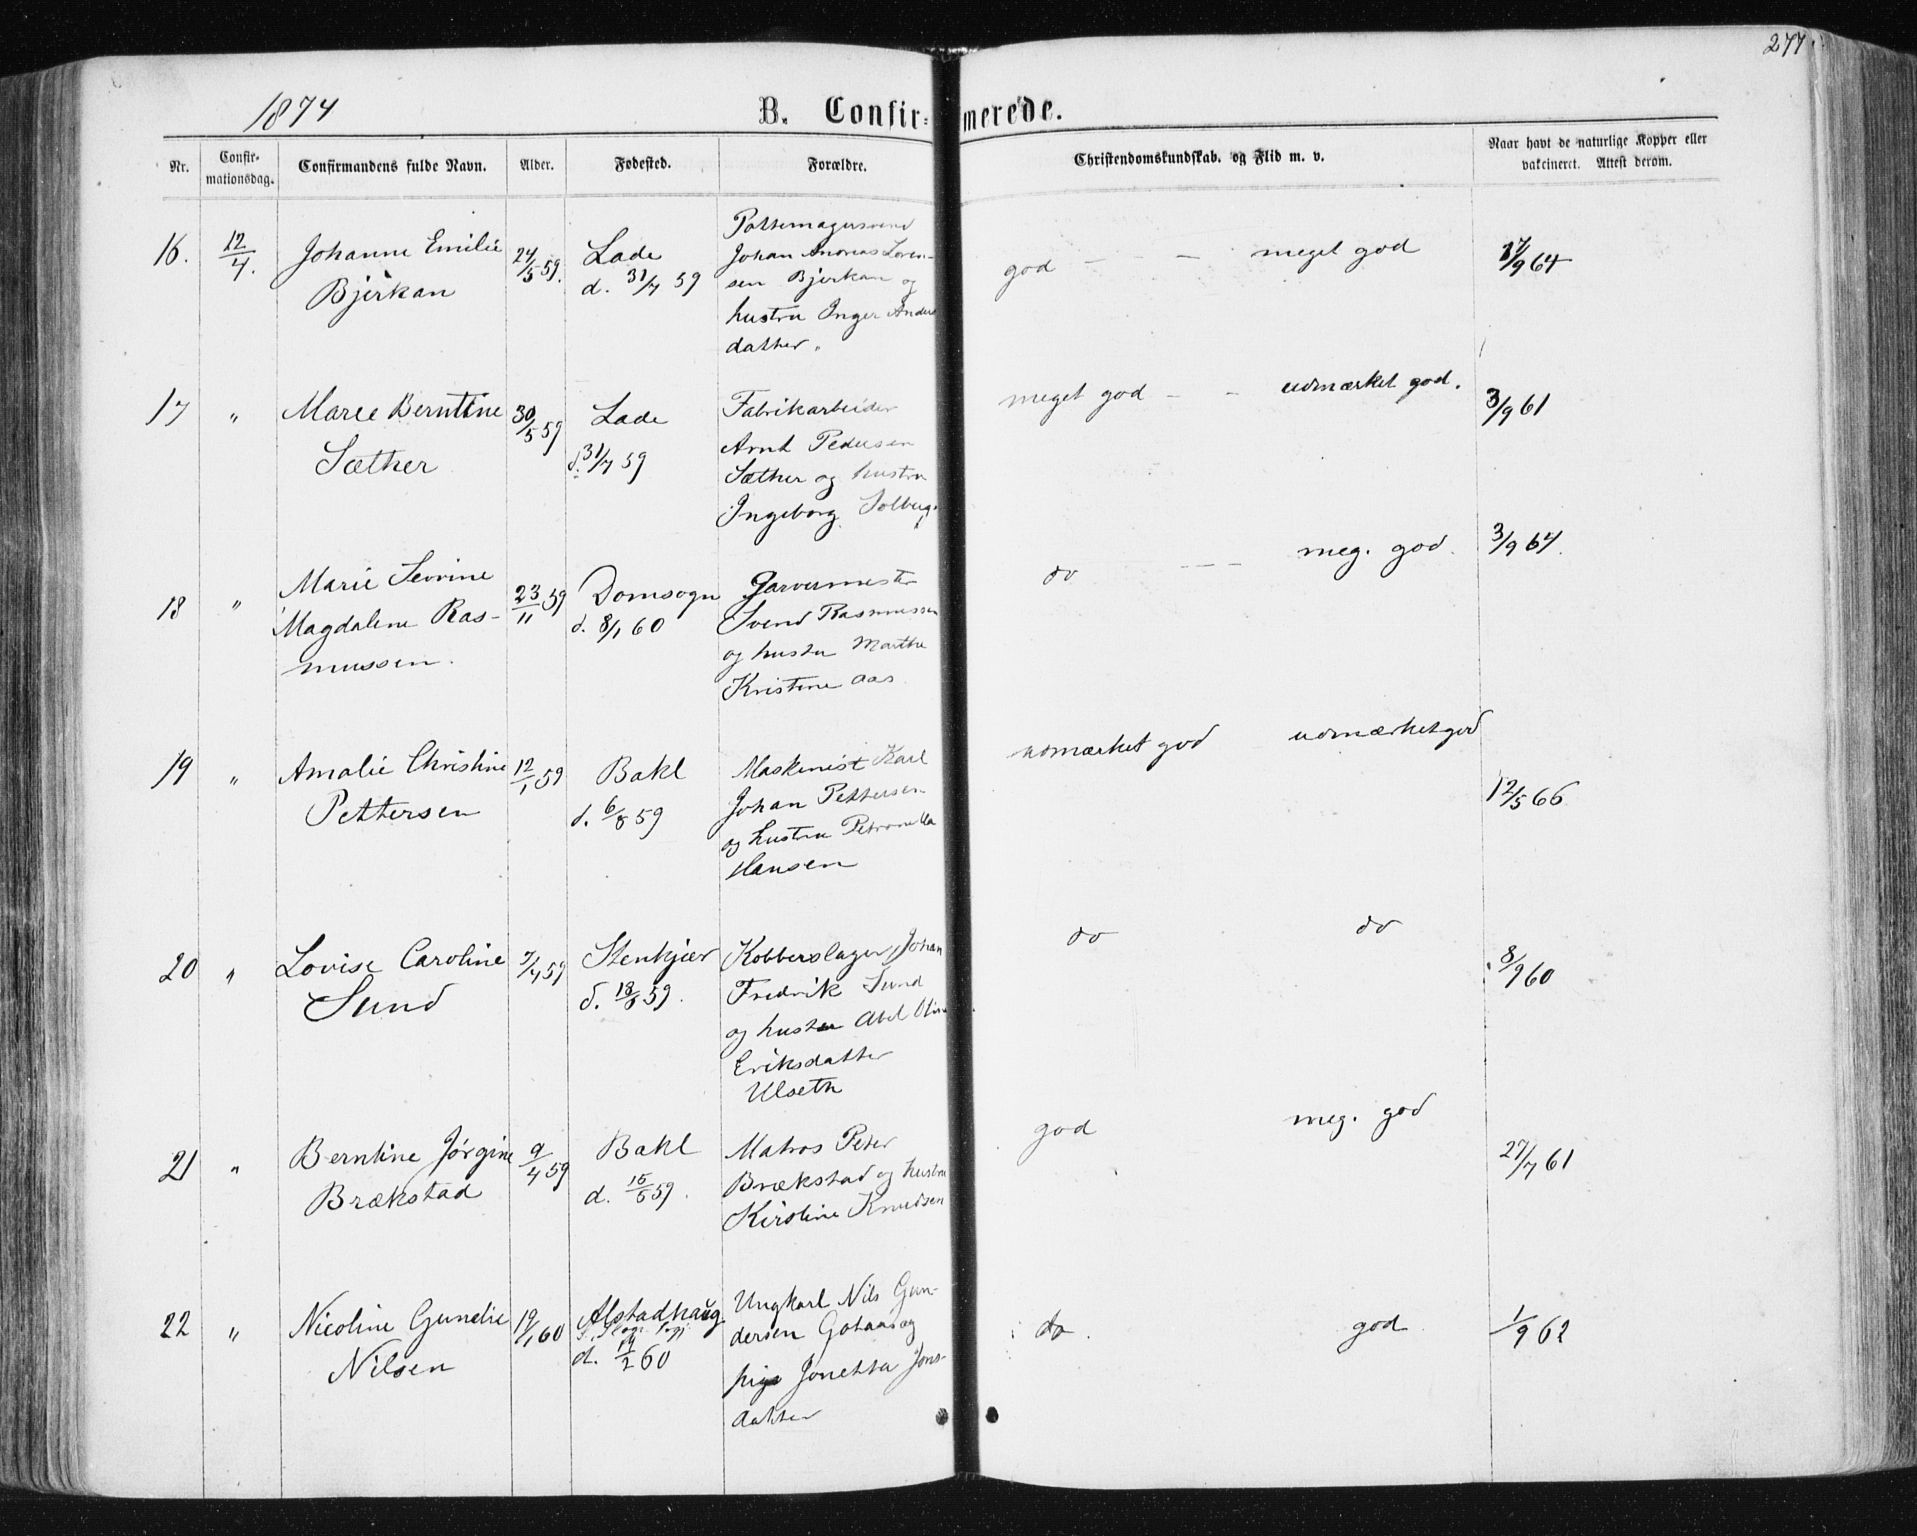 277.
1874
B. Confir=merede.
Nr.
Confir-
mationsdag.
Confirmandens fulde Navn.
Alder.
Fødested.
Forældre.
Christendomskundskab, og Flid m. v.
Naar havt de naturlige Kopper eller
vakcineret. Attest derom.
16. 12/4. Johanne Emilie
Bjerkan
24/5 59.
Lade
d. 31/7 59
Pottemagersvend
Johan Andreas Loren-
sen Bjerkan og
hustru Inger Anders
datter.
god - - - meget god
17/9 64
17 " Marie Berntine
Sæther
30/5 59
Lade
d. 31/7 59
Fabrikarbeider
Arnt Pedersen
Sæther og hustru
Ingeborg Solberg
meget god - - udmærket god.
3/9 61
18 " Marie Sevrine
Magdalene Ras-
mussen.
23/11 59
Domsogn
d. 8/1 60
Garvermester
Svend Rasmussen
og hustru Marthe
Kristine Aas
do - - - meg. god.
3/9 64.
19 " Amalie Christine
Pettersen
12/1 59
Bakl
d. 6/8 59
Maskinist Karl
Johan Pettersen
og hustru Petronella
Hansen
udmærket god udmærket god
12/5 66
20 " Lovise Caroline
Sund
7/4 59
Stenkjær
d. 18/8 59.
Kobberslager Johan
Fredrik Sund
og hustru Abel Oline
Eriksdatter
Ulseth
do do
8/9 60
21 " Berntine Jørgine
Brækstad
9/4 59
Bakl
d. 15/5 59.
Matros Peter
Brækstad og hustru
Kirstine Knudsen
god meg. god
27/7 61
22 " Nicoline Gunelie
Nilsen
19/1 60
Alstadhaug
d. 19/2 60
Ungkarl Nils Gun-
dersen og
pige Jonetta Jons-
datter
do. god
1/9 62